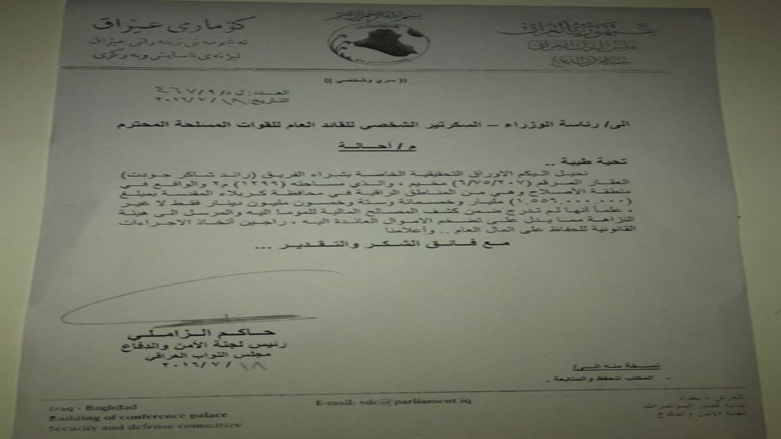 بسم الله الرحمن الرحيم
جمهورية العراق
مجلس النواب العراقي
لجنة الامن والدفاع
كۆماری عێراق
ئەنجومەنی نوێنەرانی عێراق
لیژنەی ئاسایش و بەرگری
(( سري وشخصي ))
العدد: ل د/٩/ ٤٦٧
التاريخ: ١٨/ ٧ /٢٠١٦
الى/ رئاسة الوزراء – السكرتير الشخصي للقائد العام للقوات المسلحة المحترم
م / أحالة
تحية طيبة ..
نحيل اليكم الاوراق التحقيقية الخاصة بشراء الفريق (رائد شاكر جودت)
العقار المرقم (٦/٧٥/٢٠٧) مخيم ، والذي مساحته (١٢٩٩) م٢ والواقع في
منطقة الأصلاح وهي من المناطق الراقية في محافظة كربلاء المقدسة بمبلغ
(١.٥٥٦.٠٠٠.٠٠٠) مليار وخمسمائة وستة وخمسون مليون دينار فقط لا غير
، علماً أنها لم تدرج ضمن كشف المصالح المالية للموما اليه والمرسل الى هيئة
النزاهة مما يدل على تضخم الاموال العائدة اليه ، راجين أتخاذ الاجراءات
القانونية للحفاظ على المال العام .. وأعلامنا
مع فائق الشكر والتقدير ...
حاكم الزاملي
رئيس لجنة الأمن والدفاع
مجلس النواب العراقي
١٨/ ٧ /٢٠١٦
نسخة منه الى//
- المكتب للحفظ والمتابعة .
Iraq - Baghdad
Building of conference palace
Security and defense committee
E-mail: sdc@parliament.iq
العراق - بغداد
بناية قصر المؤتمرات
لجنة الأمن والدفاع